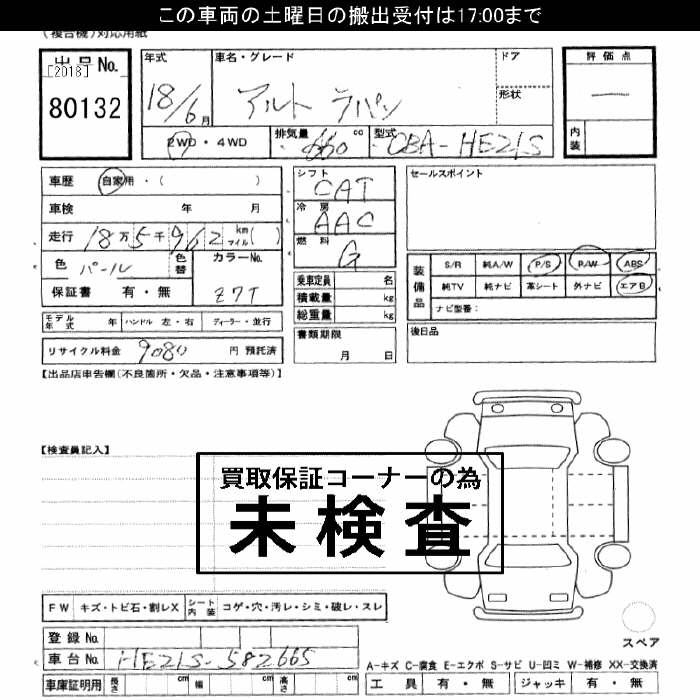 この車両の土曜日の搬出受付は17:00まで
(複合機)対応用紙
出品No.
[2018]
80132
年式
18/6月
車名・グレード
アルト ラパン
ドア
形状
評価点
―
内装
2WD・4WD
排気量 660 cc
型式 CBA-HE21S
車歴 自家用・( )
車検 年 月
走行 18万5千962 km マイル( )
色 パール
色替
カラーNo. Z7T
保証書 有・無
モデル年式 年 ハンドル 左・右 ディーラー・並行
リサイクル料金 9080 円 預託済
シフト CAT
冷房 AAC
燃料 G
乗車定員 名
積載量 kg
総重量 kg
書類期限
月 日
セールスポイント
装備品
S/R 純A/W P/S P/W ABS
純TV 純ナビ 革シート 外ナビ エアB
ナビ型番:
後日品
【出品店申告欄(不良箇所・欠品・注意事項等)】
【検査員記入】
買取保証コーナーの為
未検査
FW キズ・トビ石・割レX シート内装 コゲ・穴・汚レ・シミ・破レ・スレ
登録No.
車台No. HE21S-582665
車庫証明用 長さ cm 幅 cm 高さ cm
スペア
A-キズ C-腐食 E-エクボ S-サビ U-凹ミ W-補修 XX-交換済
工具 有・無 ジャッキ 有・無